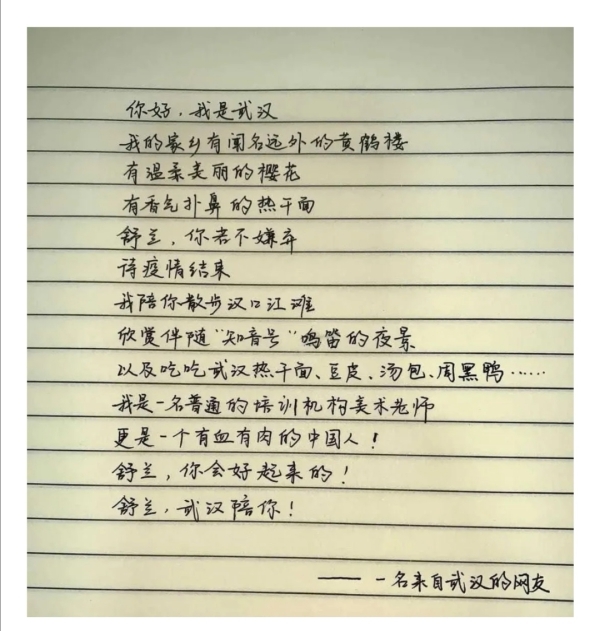 你好，我是武汉
我的家乡有闻名远外的黄鹤楼
有温柔美丽的樱花
有香气扑鼻的热干面
舒兰，你若不嫌弃
待疫情结束
我陪你散步汉口江滩
欣赏伴随“知音号”鸣笛的夜景
以及吃吃武汉热干面、豆皮、汤包、周黑鸭……
我是一名普通的培训机构美术老师
更是一个有血有肉的中国人！
舒兰，你会好起来的！
舒兰，武汉陪你！
—— 一名来自武汉的网友